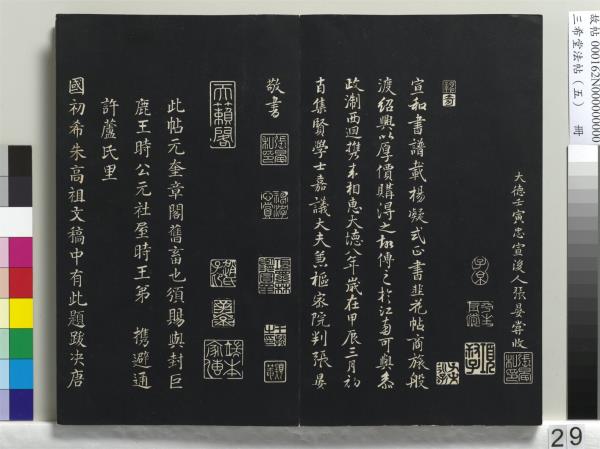 故帖 000162N000000000
三希堂法帖（五） 冊
大德壬寅忠宣後人張晏審收
宣和書譜載楊凝式正書韭花帖商旅般
渡紹興以厚價購得之故傳之於江南可與泰
政浙西迴携來相惠大德八年歲在甲辰三月初
吉集賢學士嘉議大夫兼樞密院判張晏
敬書
天籟閣
此帖元奎章閣舊畜也須賜與封巨
鹿王時公元社屋時王第 携避通
許蘆氏里
國初希朱高祖文稿中有此題跋決唐
29